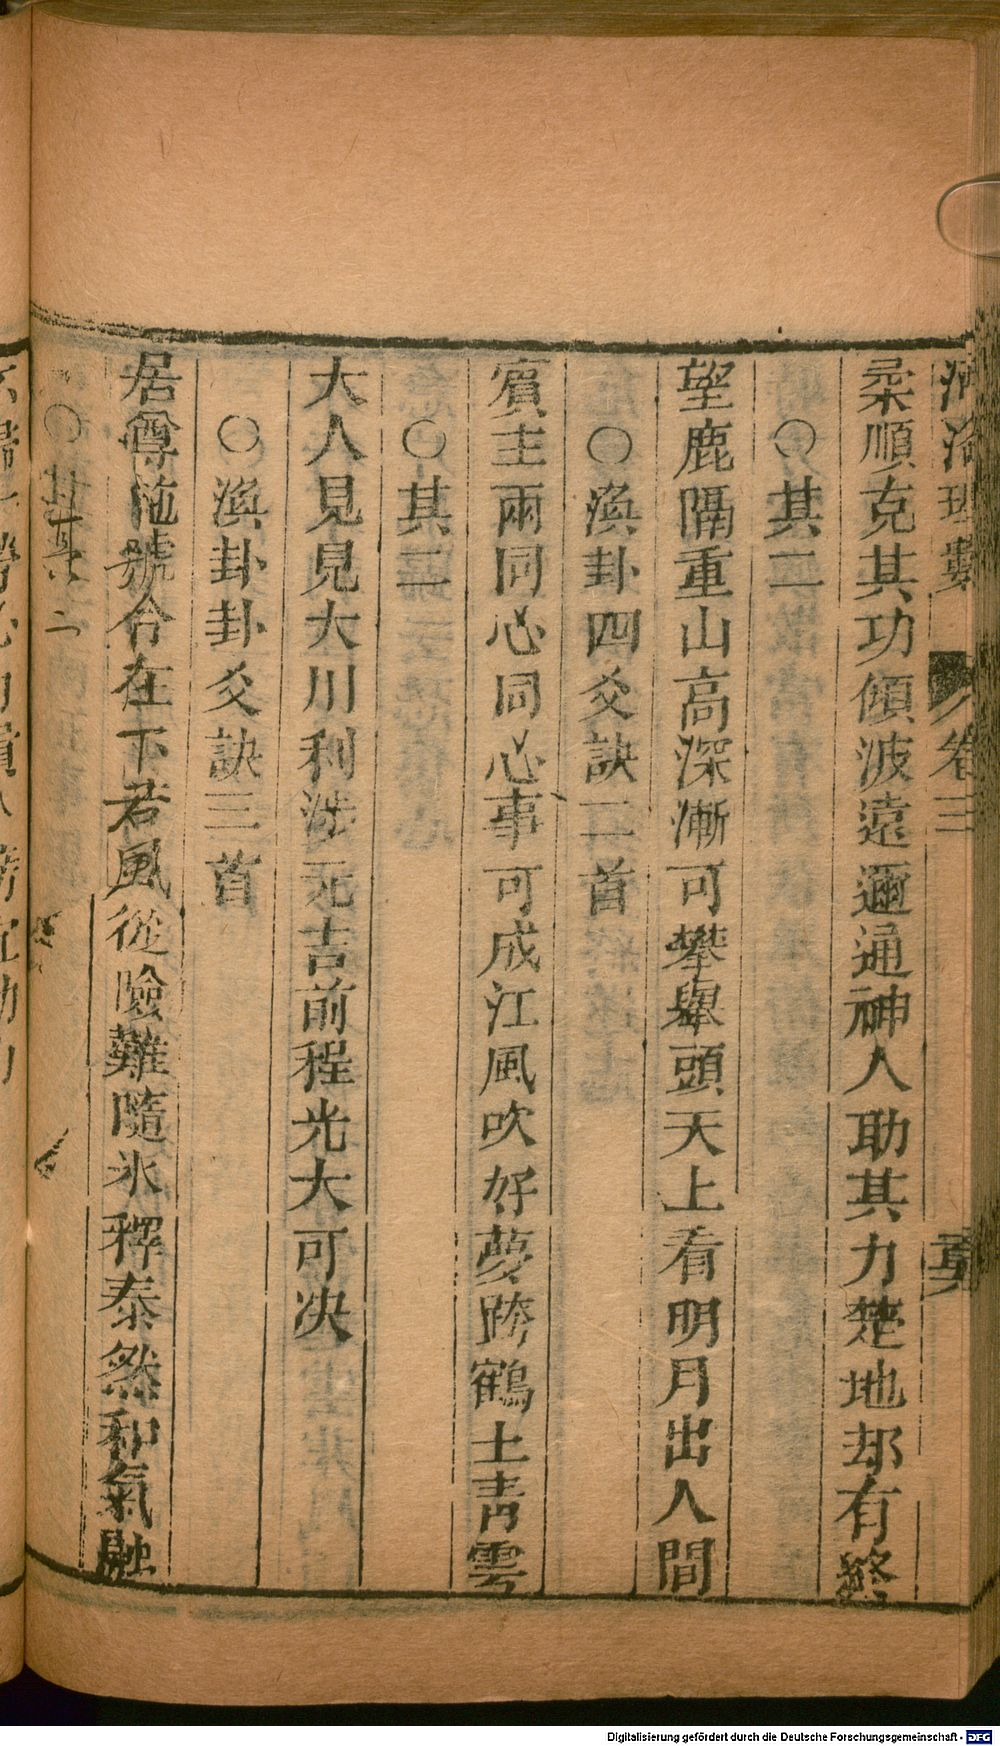 河洛理數 卷三
柔順克其功傾波遠邇通神人助其力楚地却有終
○其二
望鹿隔重山高深漸可攀舉頭天上看明月出人間
○渙卦四爻訣二首
賓主兩同心同心事可成江風吹好夢跨鶴上青雲
○其二
大人見見大川利涉元吉前程光大可决
○渙卦卦爻訣三首
居尊施號合在下若風從險難隨氷釋泰然和氣融
○其二
Digitalisierung gefördert durch die Deutsche Forschungsgemeinschaft - DFG